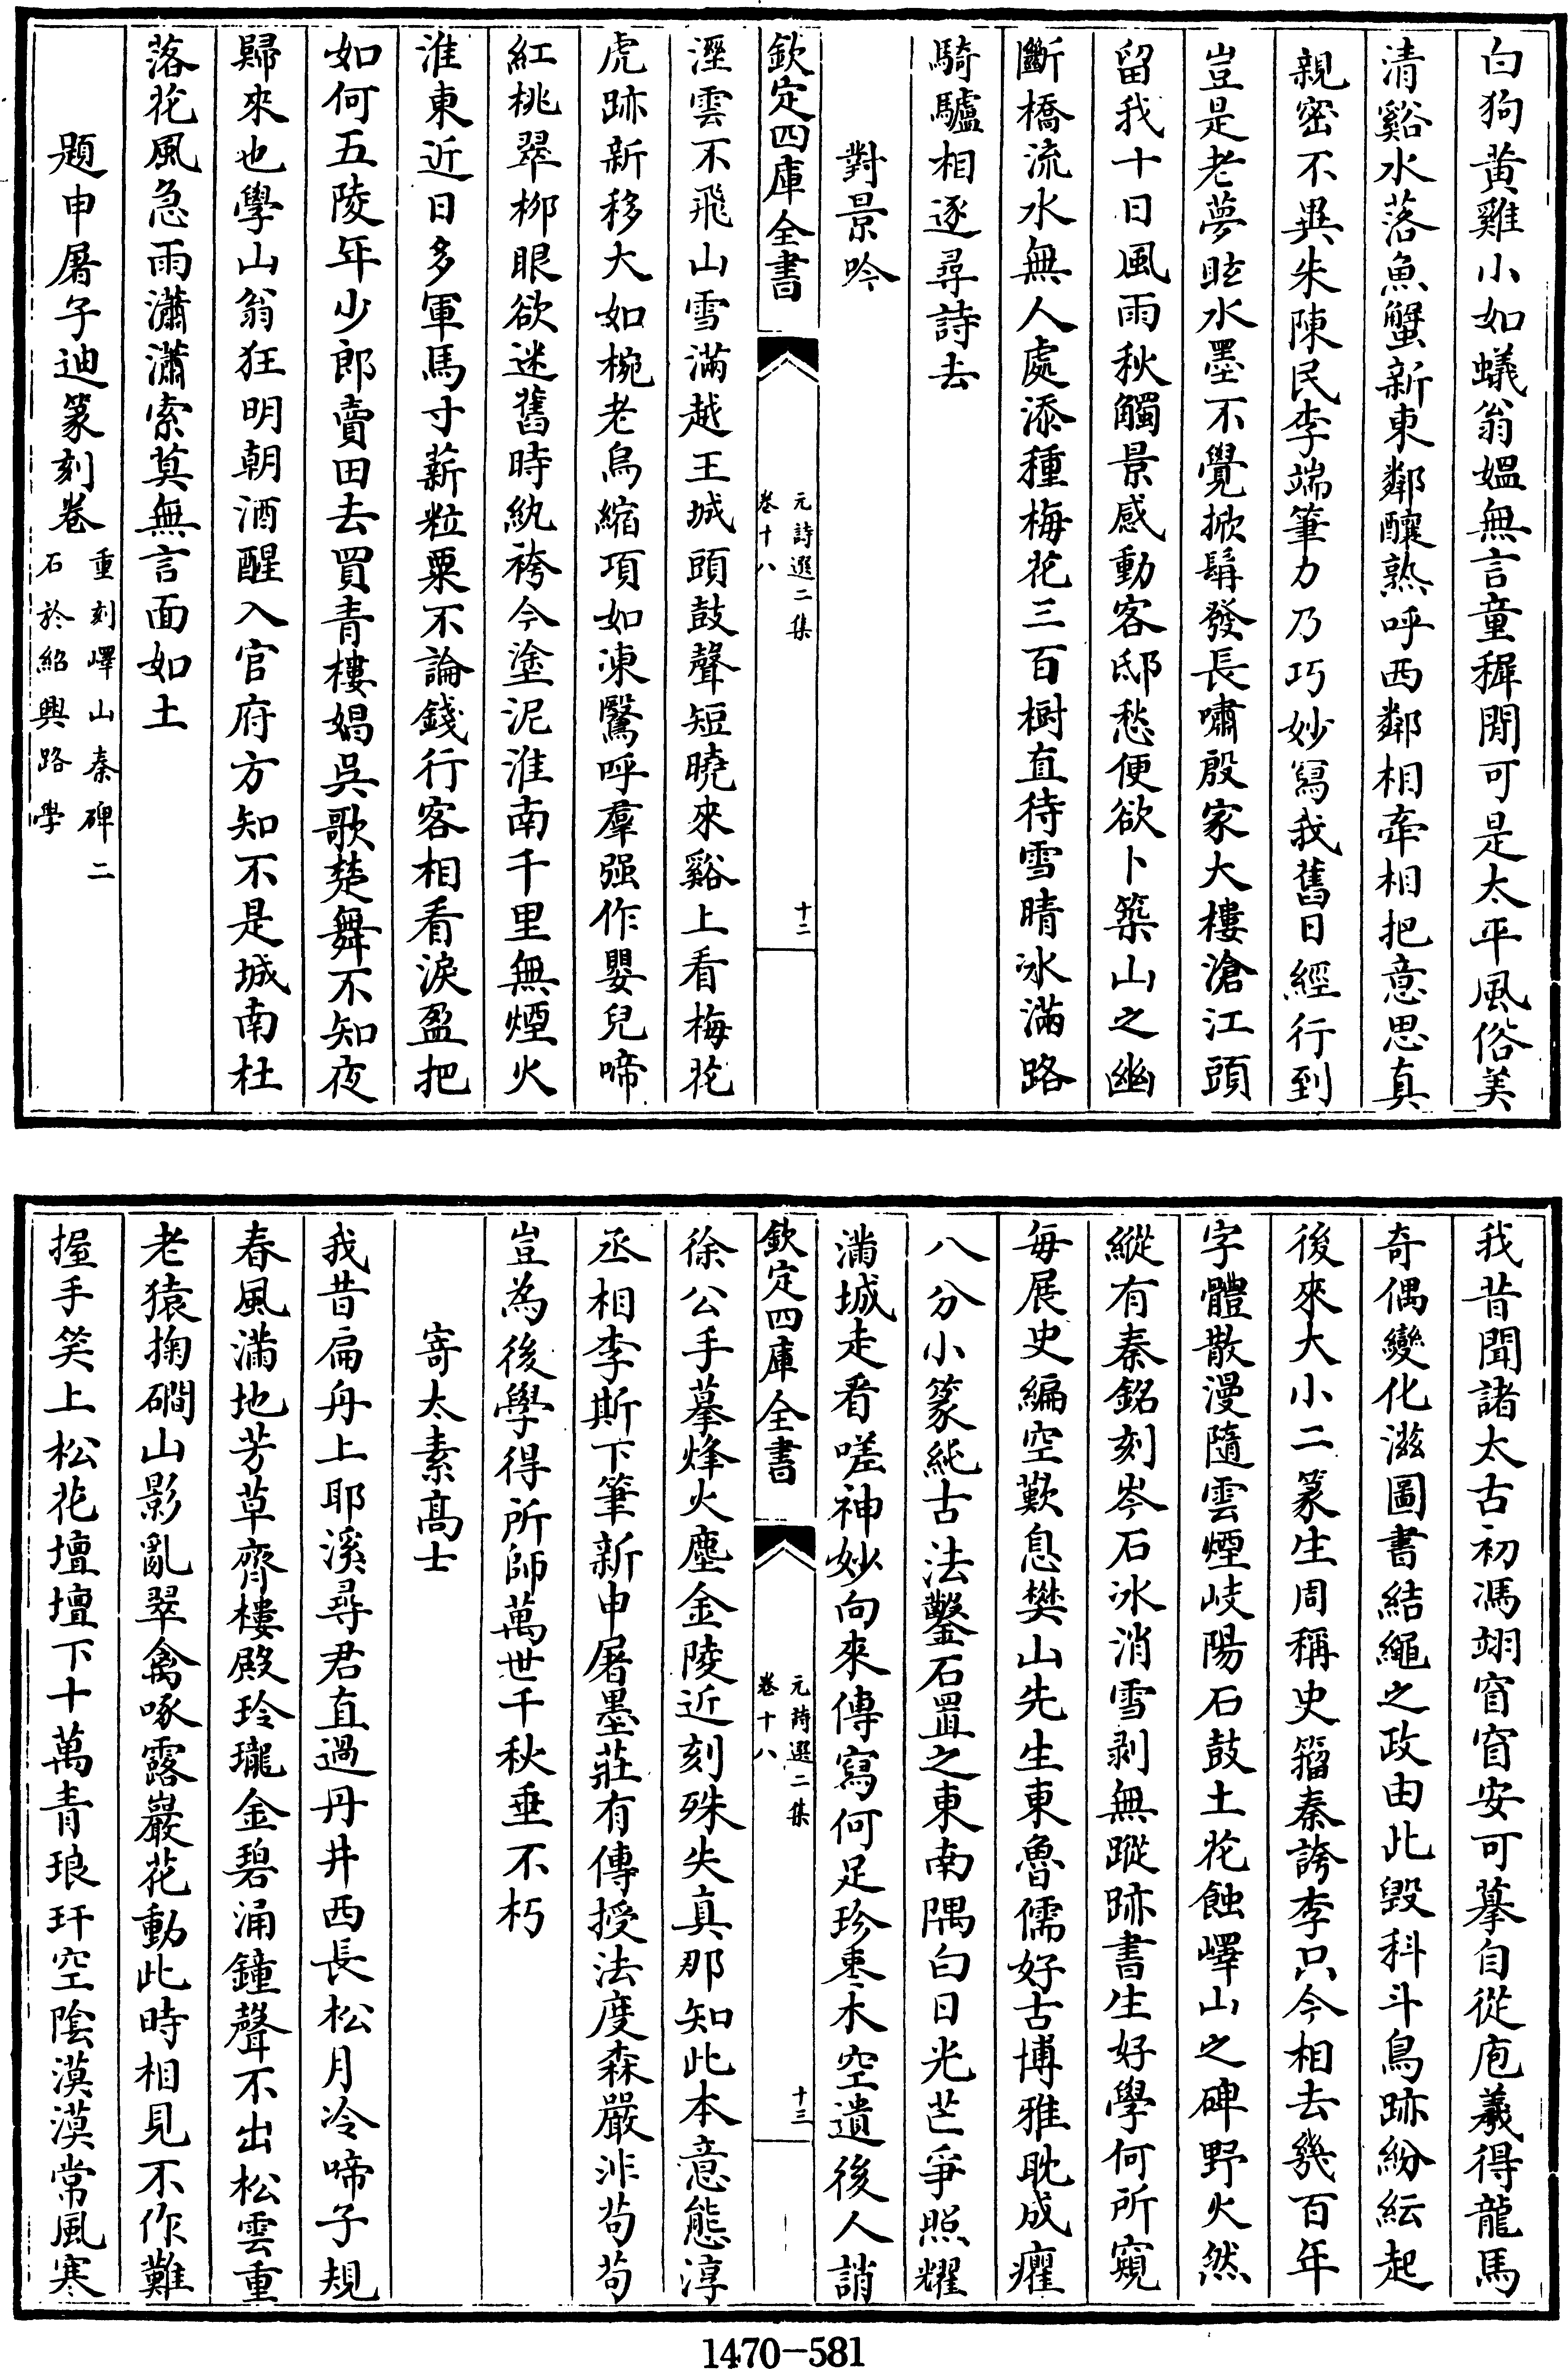 白狗黄雞小如蟻翁媪無言童穉閒可是太平風俗美
清谿水落魚蟹新東鄰釀熟呼西鄰相牽相把意思真
親密不異朱陳民李端筆力乃巧妙寫我舊日經行到
豈是老夢眩水墨不覺掀髯發長嘯殷家大樓滄江頭
留我十日風雨秋觸景感動客邸愁便欲卜築山之幽
斷橋流水無人處添種梅花三百樹直待雪晴冰滿路
騎驢相逐尋詩去
對景吟
欽定四庫全書
元詩選二集
卷十八
十二
溼雲不飛山雪滿越王城頭鼓聲短曉來谿上看梅花
虎跡新移大如椀老烏縮項如凍鷖呼羣强作嬰兒啼
紅桃翠栁眼欲迷舊時紈袴今塗泥淮南千里無煙火
淮東近日多軍馬寸薪粒粟不論錢行客相看淚盈把
如何五陵年少郎賣田去買青樓娼吳歌楚舞不知夜
歸來也學山翁狂明朝酒醒入官府方知不是城南杜
落花風急雨瀟瀟索莫無言面如土
題申屠子迪篆刻卷
重刻嶧山秦碑二
石於紹興路學
我昔聞諸太古初馮翊窅窅安可摹自從庖羲得龍馬
奇偶變化滋圖書結繩之政由此毀科斗鳥跡紛紜起
後來大小二篆生周稱史籀秦誇李只今相去幾百年
字體散漫隨雲煙岐陽石鼓土花蝕嶧山之碑野火然
縱有秦銘刻岑石冰消雪剥無蹤跡書生好學何所窺
每展史編空歎息樊山先生東魯儒好古博雅耽成癯
八分小篆純古法鑿石置之東南隅白日光芒爭照耀
滿城走看嗟神妙向來傳寫何足珍棗木空遺後人誚
欽定四庫全書
元詩選二集
卷十八
十三
徐公手摹烽火塵金陵近刻殊失真那知此本意態淳
丞相李斯下筆新申屠墨莊有傳授法度森嚴非苟苟
豈為後學得所師萬世千秋垂不朽
寄太素髙士
我昔扁舟上耶溪尋君直過丹井西長松月冷啼子規
春風滿地芳草齊樓殿玲瓏金碧涌鐘聲不出松雲重
老猿掬磵山影亂翠禽啄露巖花動此時相見不作難
握手笑上松花壇壇下十萬青琅玕空陰漠漠常風寒
1470-581